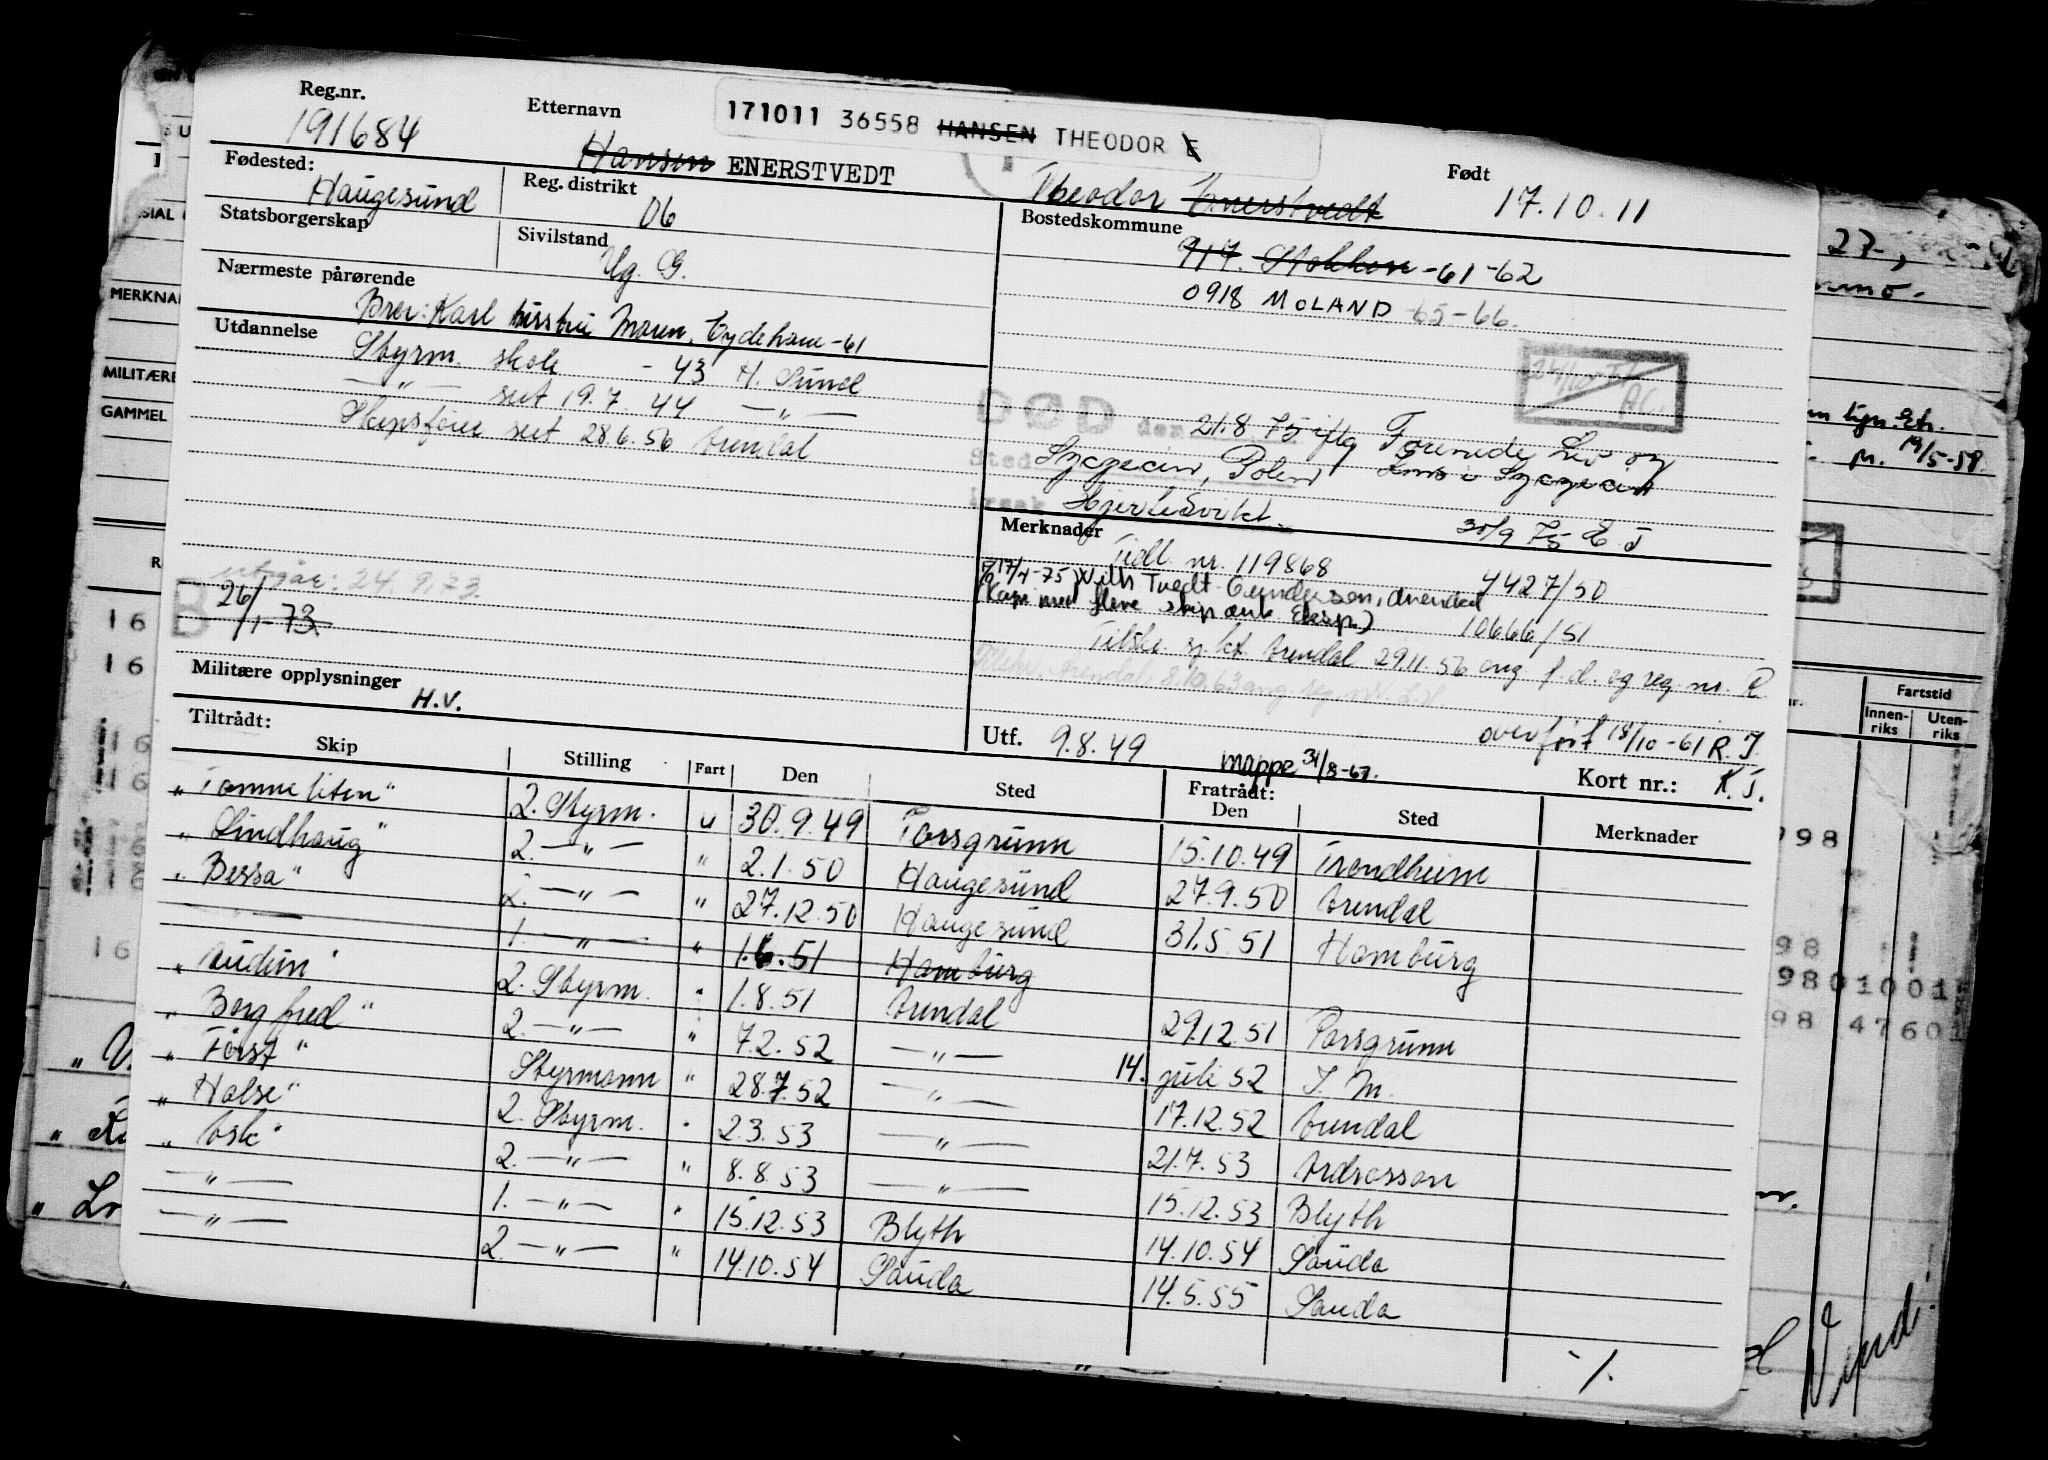 171011 36558 HANSEN THEODOR E
Reg.nr. Etternavn Født
191684 Hansen ENERSTVEDT Theodor Enerstvedt 17.10.11
Fødested: Reg. distrikt Bostedskommune
Haugesund 06 917. Stokken -61-62
Statsborgerskap Sivilstand
Ug. G. 0918 MOLAND 65-66.
Nærmeste pårørende
Bror: Karl Moren, Eydehavn -61
Utdannelse
Styrm. skole - 43 H. Sund
— " — sert 19.7. 44 — " —
Skipsfører sert 28.6.56 Arendal
DØD den 21.8 75 iflg Forenede Liv og
Sted Szczecin, Polen i Szczecin
årsak Hjertesvikt. 30/9 75 E. J
Merknader
Tidl. nr. 119868 4427/50
17/4-75 Tvedt Gundersen, Arendal
(Kopi med flere skip Eksp.) 10666/51
Tilskr. sj. kt. Arendal 29.11.56 ang f. d. og reg. nr. R.
Arendal, 8.10.63 ang reg. nr.
utgår: 24.9.73.
B 26/1-73
Militære opplysninger
H.V.
overført 18/10-61 R. J.
Utf. 9.8.49 mappe 31/8-67. Kort nr.: K. J.
Tiltrådt: Fratrådt:
Skip Stilling Fart Den Sted Den Sted Merknader
"Tomme liten" 2. Styrm. u 30.9.49 Porsgrunn 15.10.49 Trondheim
"Lindhaug" 2. — " — " 2.1.50 Haugesund 27.9.50 Arendal
"Bessa" 2. — " — " 27.12.50 Haugesund 31.5.51 Hamburg
— " — 1. — " — " 1.6.51 Hamburg
"Audun" 2. Styrm. " 1.8.51 Arendal 29.12.51 Porsgrunn
"Borgfred" 2. — " — " 7.2.52 — " — 14. juli 52 I. M.
"Först" Styrmann " 28.7.52 — " — 17.12.52 Arendal
"Halse" 2. Styrm. " 2.3.53 — " — 21.7.53 Ardrossan
"Ask" 2. — " — " 8.8.53 — " — 15.12.53 Blyth
— " — 1. — " — " 15.12.53 Blyth 14.10.54 Sauda
— " — 2. — " — " 14.10.54 Sauda 14.5.55 Sauda
./.
MERKNA
MILITÆRE
GAMMEL
Fartstid
Innen-
riks
Uten-
riks